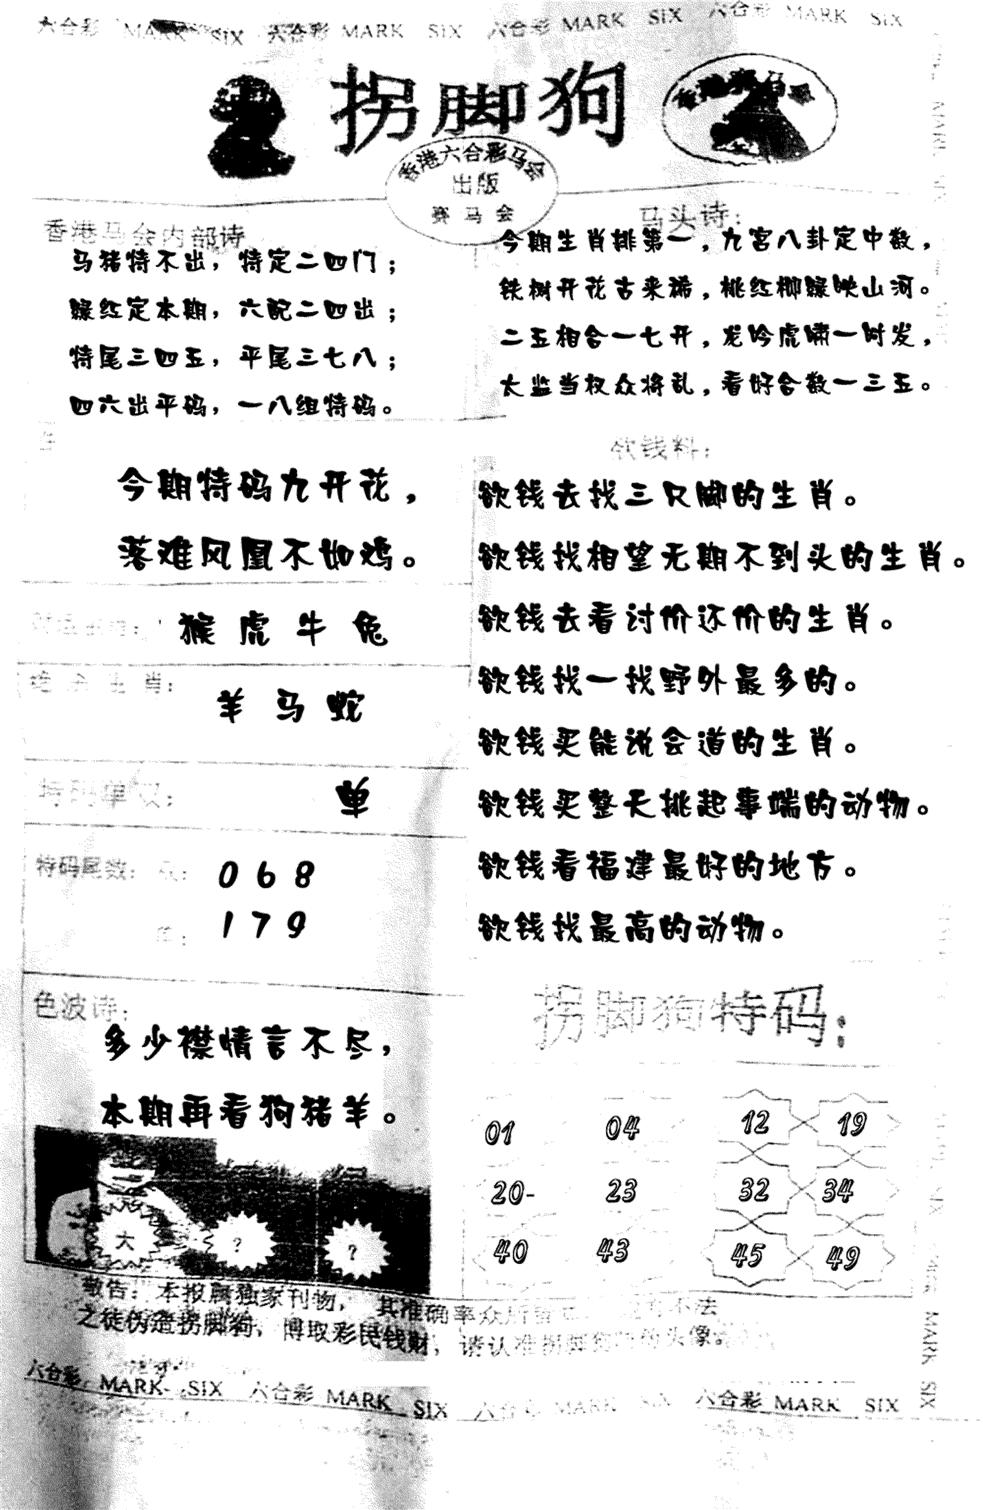 六合彩 MARK SIX 六合彩 MARK SIX 六合彩 MARK SIX 六合彩 MARK SIX
拐脚狗
香港赛马会
香港六合彩马会
出版
赛马会
香港马会内部诗
马猪特不出，特定二四门；
绿红定本期，六配二四出；
特尾三四五，平尾三七八；
四六出平码，一八组特码。
马头诗：
今期生肖排第一，九宫八卦定中数，
铁树开花古来稀，桃红柳绿映山河。
二五相合一七开，龙吟虎啸一时发，
太监当权众将乱，看好合数一三五。
今期特码九开花，
落难凤凰不如鸡。
猴 虎 牛 兔
绝杀生肖：
羊 马 蛇
特码单双：
单
特码尾数：双：
0 6 8
单：
1 7 9
色波诗：
多少襟情言不尽，
本期再看狗猪羊。
大 ？ ？
欲钱料：
欲钱去找三只脚的生肖。
欲钱找相望无期不到头的生肖。
欲钱去看讨价还价的生肖。
欲钱找一找野外最多的。
欲钱买能说会道的生肖。
欲钱买整天挑起事端的动物。
欲钱看福建最好的地方。
欲钱找最高的动物。
拐脚狗特码：
01 04 12 19
20- 23 32 34
40 43 45 49
敬告：本报属独家刊物，其准确率众所 不法
之徒伪造拐脚狗，博取彩民钱财，请认准拐脚狗 的头像。
六合彩 MARK SIX 六合彩 MARK SIX 六合彩 MARK SIX 六合彩 MARK SIX
MARK SIX